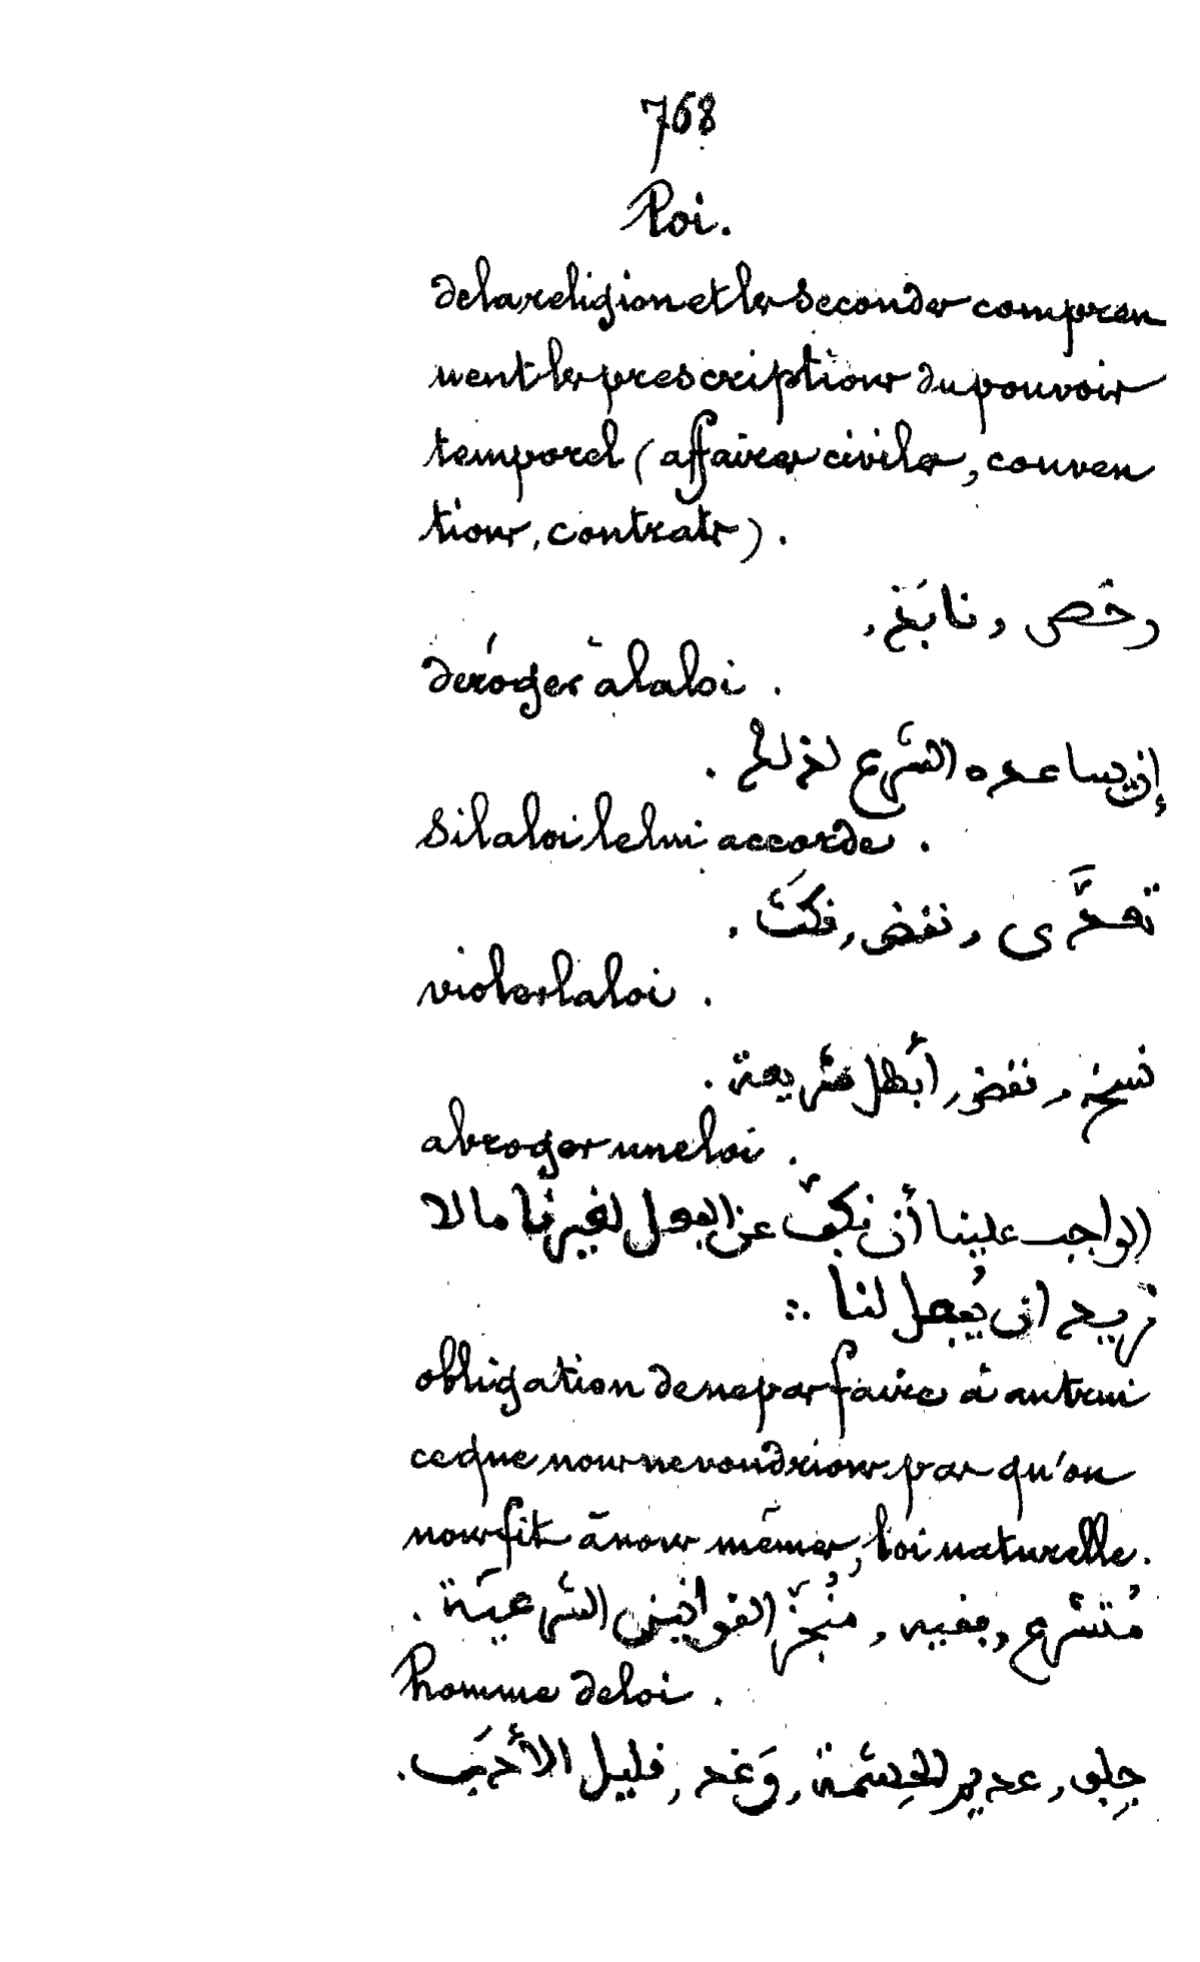 768
Loi.
de la religion et les secondes compren
nent les prescriptions du pouvoir
temporel (affaires civiles, conven
tions, contrats).
رخص و نابذ,
déroger à la loi.
إن يساعده الشرع لذلك.
si la loi le lui accorde.
تعدَّى و نقض, نكث.
violer la loi.
نسخ, نقض, أبطل شريعة.
abroger une loi.
الواجب علينا أن نكفّ عن الفعل لغيرنا ما لا
نريد أن يُفعل لنا
obligation de ne pas faire à autrui
ce que nous ne voudrions pas qu'on
nous fît à nous mêmes, loi naturelle.
مُتشرع, فقيه, مُنُجّز القوانين الشرعيّة.
homme de loi.
جِلف, عديم الحِشمة, وَغد, قليل الأدَب.